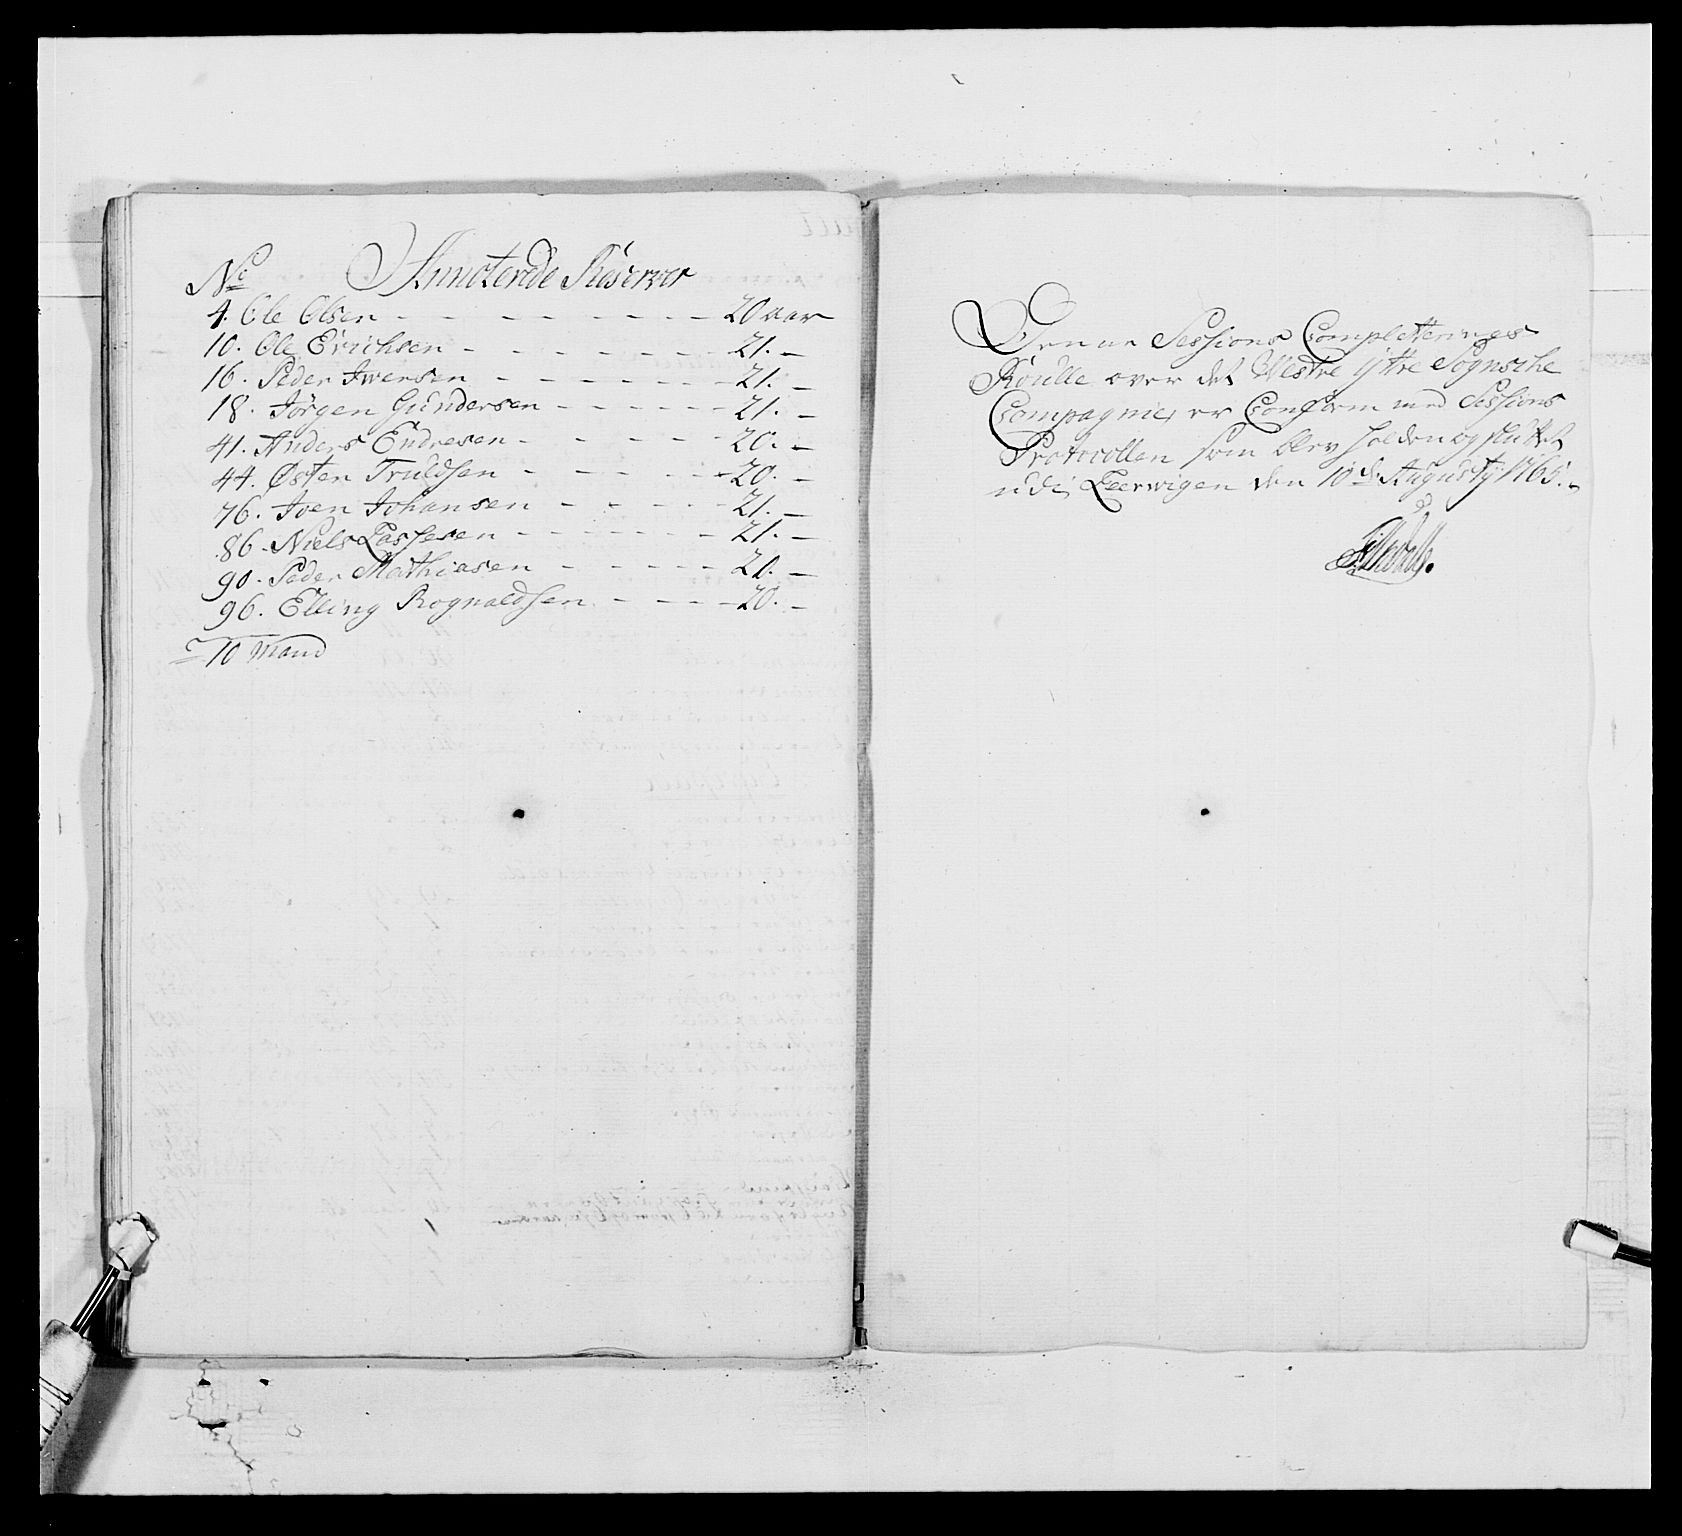 No Annoterede Reserver
4. Ole Olsen - - - - - - - - - 20 aar
10. Ole Erichsen - - - - - - - 21. -
16. Peder Iwersen - - - - - - - 21. -
18. Jörgen Gundersen - - - - - - 21. -
41. Anders Endresen - - - - - - 20. -
44. Østen Truldsen - - - - - - 20. -
76. Joen Johansen - - - - - 21. -
86. Niels Lassesen - - - - - - 21. -
90. Peder Mathiasen - - - - - 20. -
96. Elling Rognaldsen - - - - 20. -
10 Mand
Denne Sessions Completterings
Roulle over det Vestre Yttre Sognsche
Compagnie, er Conform med Sessions
Protocollen som blev holden og sluttet
udi Leerwigen den 10de Augusty 1765.